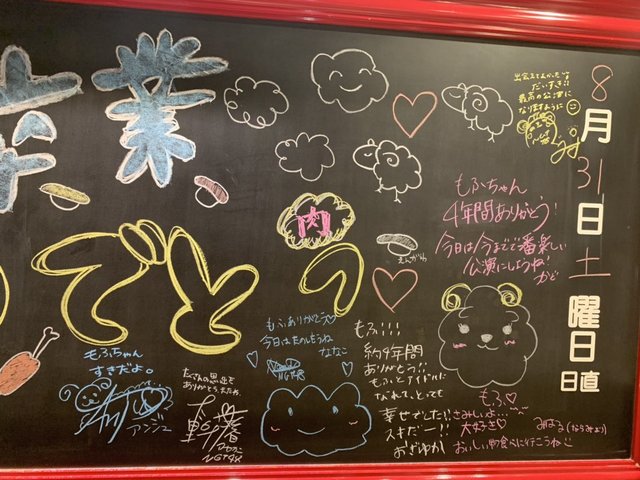 卒業
おめでとう
肉
えんがわ
出会えてよかったです
だいすき!!
最高の公演に
なりますように
8月31日土曜日
日直
もふちゃん
4年間ありがとう!
今日は今までで1番楽しい
公演にしようね!
かど
もふありがとう♡
今日はたのしもうね
ななこ
NGT48
もふ!!!
約4年間
ありがとう!!
もふとアイドルに
なれて、とっても
幸せでした!!
スキだー!!
おぎゆか
もふ♡
さみしいよ...
大好き♡
みはる(ならみょり)
おいしい物食べに行こうね
もふちゃん
すきだよ。
アンジュ
たくさんの思い出を
ありがとうございました。
NGT48